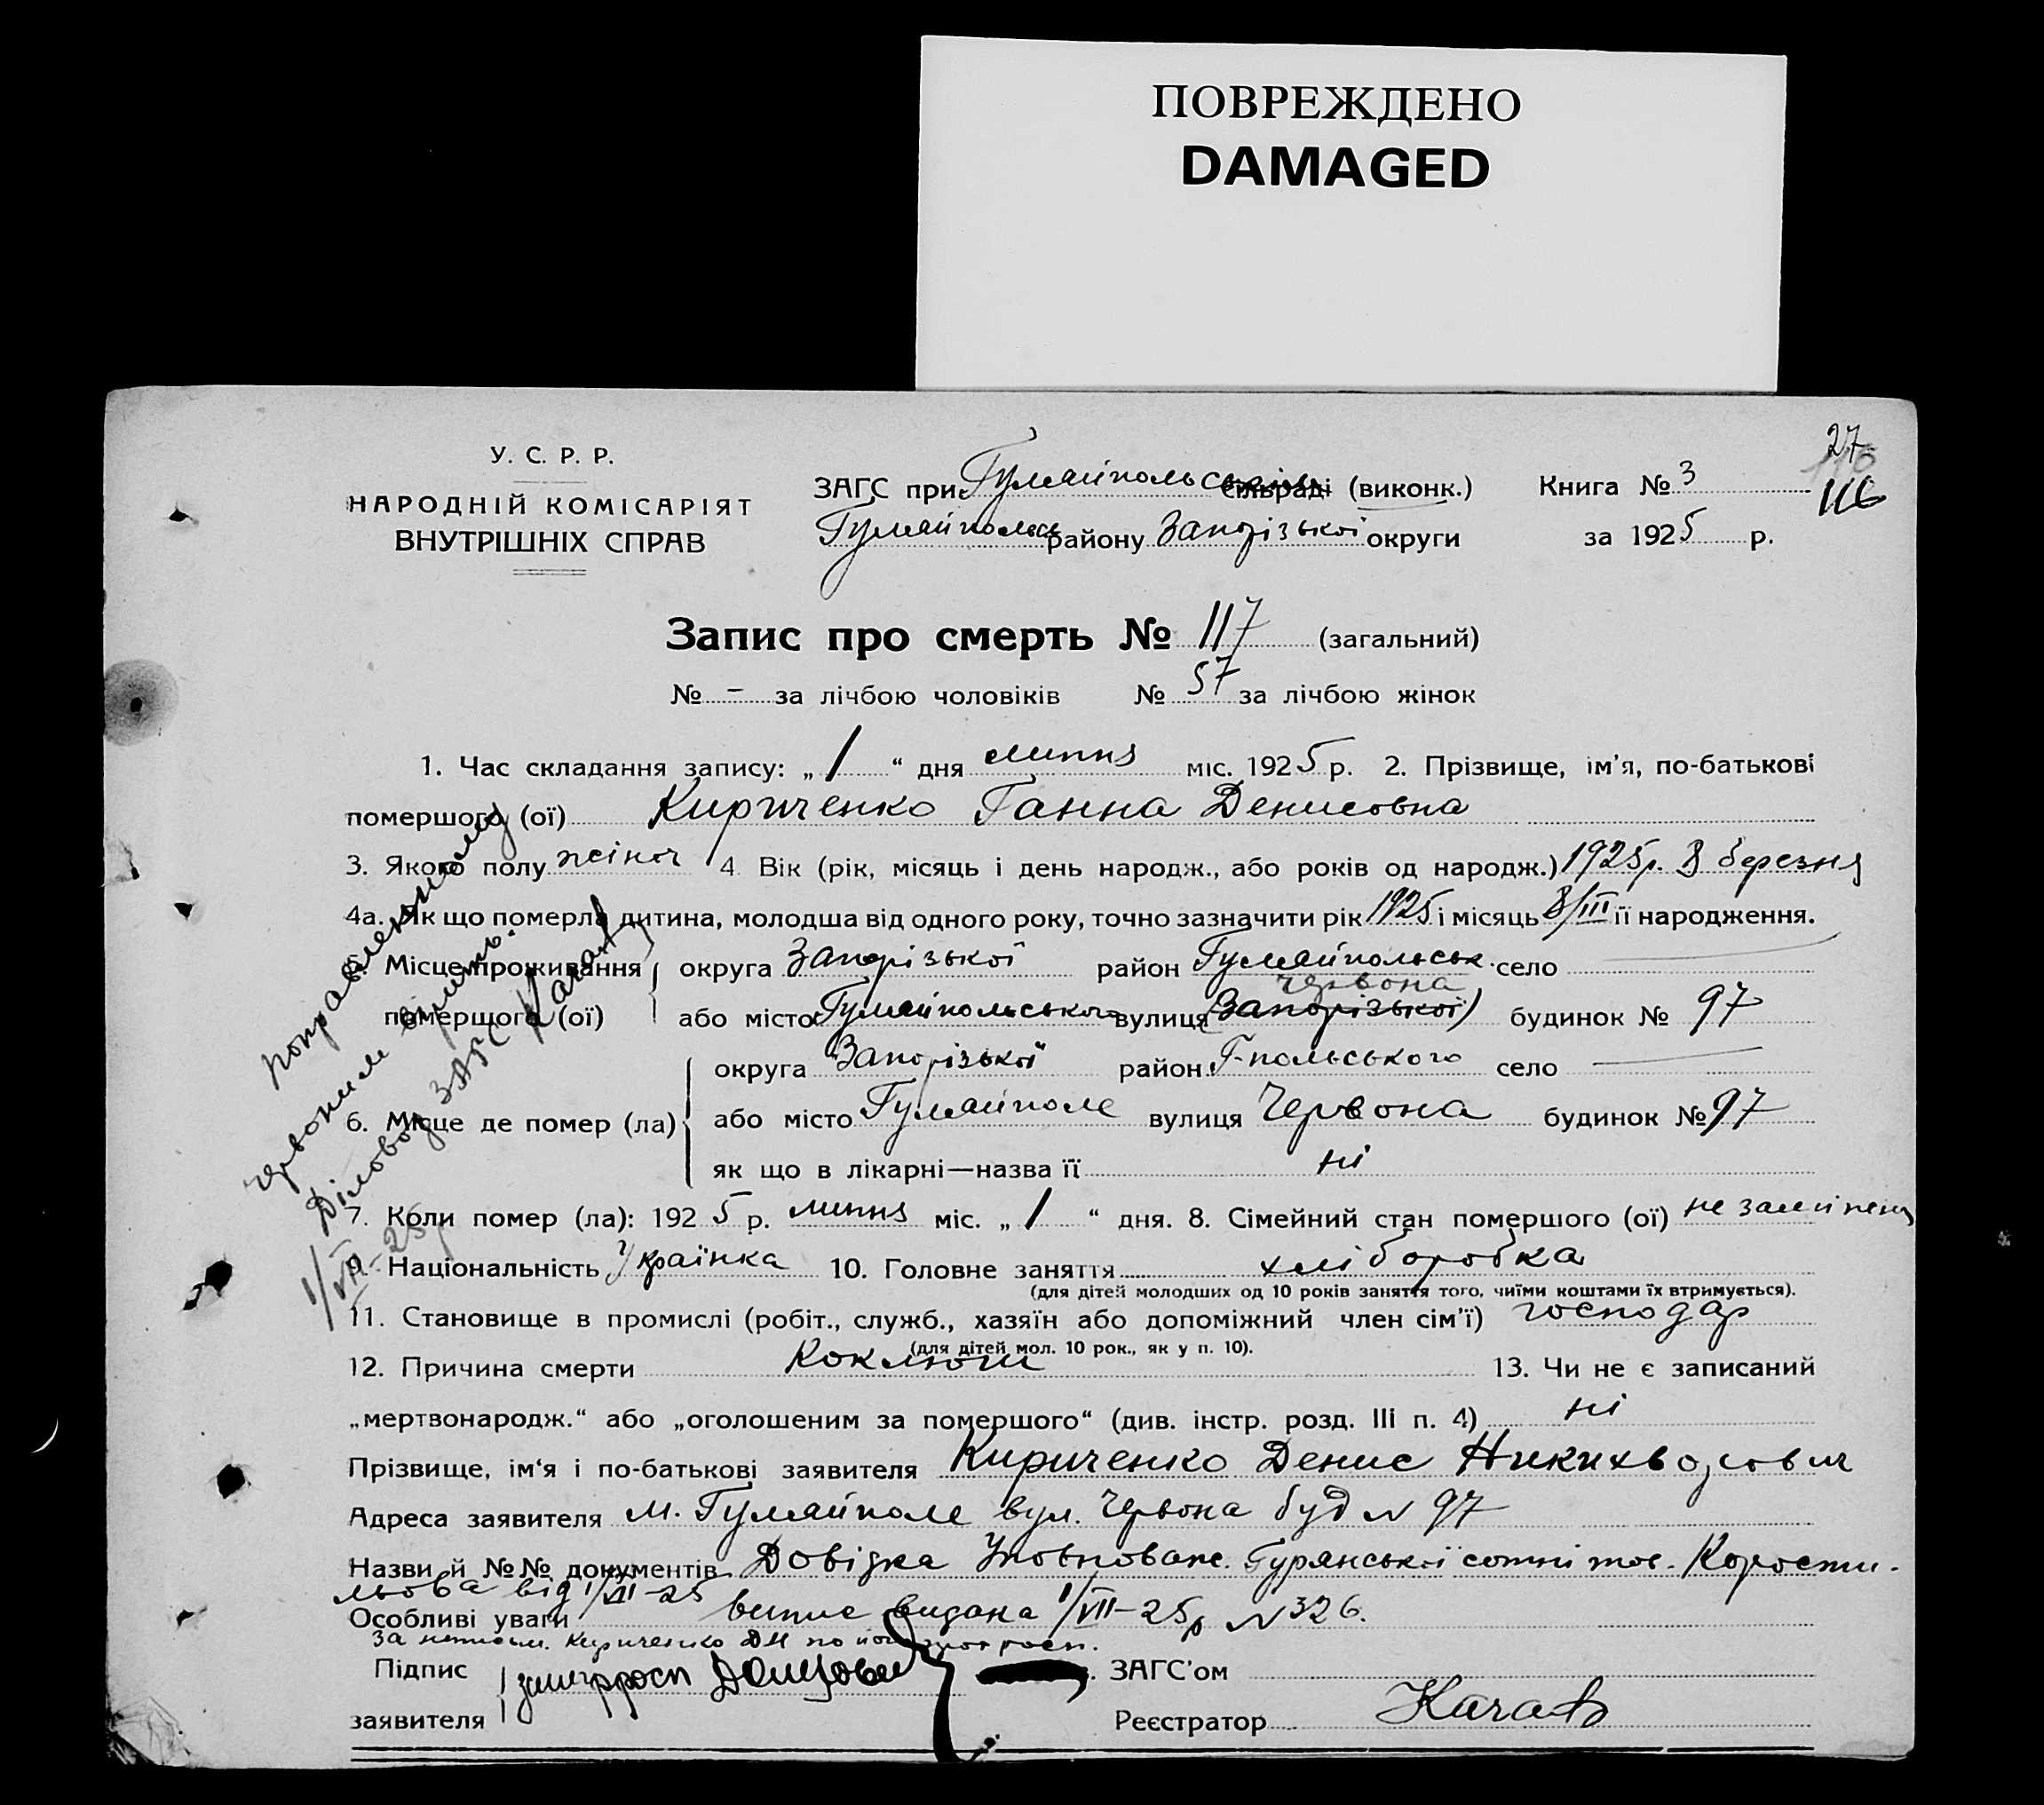 ПОВРЕЖДЕНО
DAMAGED
27
116
У. С. Р. Р.
НАРОДНІЙ КОМІСАРІЯТ
ВНУТРІШНІХ СПРАВ
ЗАГС при Гуляйпольськім сільраді (виконк.)
Гуляйпольськ району Запорізької округи
Книга № 3
за 1925 р.
Запис про смерть № 117 (загальний)
№ - за лічбою чоловіків № 57 за лічбою жінок
1. Час складання запису: „ 1 “ дня липня міс. 1925 р. 2. Прізвище, ім'я, по-батькові
помершого (ої) Кириченко Ганна Денисовна
3. Якого полу жіноч 4. Вік (рік, місяць і день народж., або років од народж.) 1925р. 8 березня
4а. Як що померла дитина, молодша від одного року, точно зазначити рік 1925 і місяць 8/III її народження.
5. Місце проживання помершого (ої)
округа Запорізької район Гуляйпольськ. село —
червона
або місто Гуляйпольського вулиця (Запорізької) будинок № 97
6. Місце де помер (ла)
округа Запорізької район Г-польського село —
або місто Гуляйполе вулиця Червона будинок № 97
як що в лікарні—назва її ні
7. Коли помер (ла): 1925 р. липня міс. „ 1 “ дня. 8. Сімейний стан помершого (ої) не заміжня
9. Національність Українка 10. Головне заняття хліборобка
(для дітей молодших од 10 років заняття того, чиїми коштами їх втримується).
11. Становище в промислі (робіт., служб., хазяїн або допоміжний член сім'ї) господар
(для дітей мол. 10 рок., як у п. 10).
12. Причина смерти Коклюш 13. Чи не є записаний
„мертвонародж.“ або „оголошеним за помершого“ (див. інстр. розд. III п. 4) ні
Прізвище, ім'я і по-батькові заявителя Кириченко Денис Никихворович
Адреса заявителя м. Гуляйполе вул. Червона буд N 97
Назви й №№ документів Довідка Уповноваж. Гурянської сотні тов. Корости-
льова від 1/VII-25
Особливі уваги випис видана 1/VII-25р N 326.
За неписьм. Кириченко ДН по його
Підпис
заявителя
ЗАГС'ом
Реєстратор
поправленному
червоним вірить.
Діловод ЗАГС
1/VII-25р